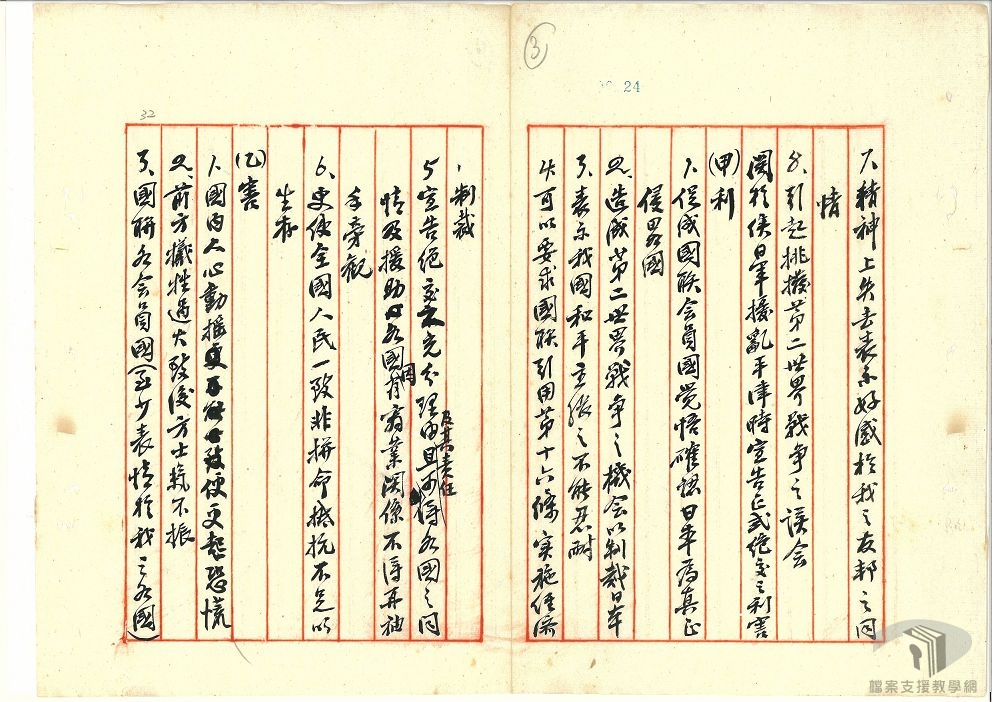 3
24
7、精神上失去表示好感於我之友邦之同
情
8、引起挑撥第二世界戰争之误会
関於俟日軍擾亂平津時宣告正式绝交之利害
(甲)利
1、促成國联会員國覺悟確認日本為真正
侵畧國
2、造成第二世界戰争之機会以制裁日本
3、表示我國和平主張之不能忍耐
4、可以要求國联引用第十六條实施经濟
32
、制裁
5、宣告绝交充分理由及其责任且可得各國之同
情及援助各國因有商業関係不得再袖
手旁観
6、更使全國人民一致非拼命抵抗不足以
生存
(乙)害
1、國内人心動摇便更起恐慌
2、前方犧牲過大致後方士氣不振
3、國聯各会員國(至少表情於我之各國)
檔案支援教學網